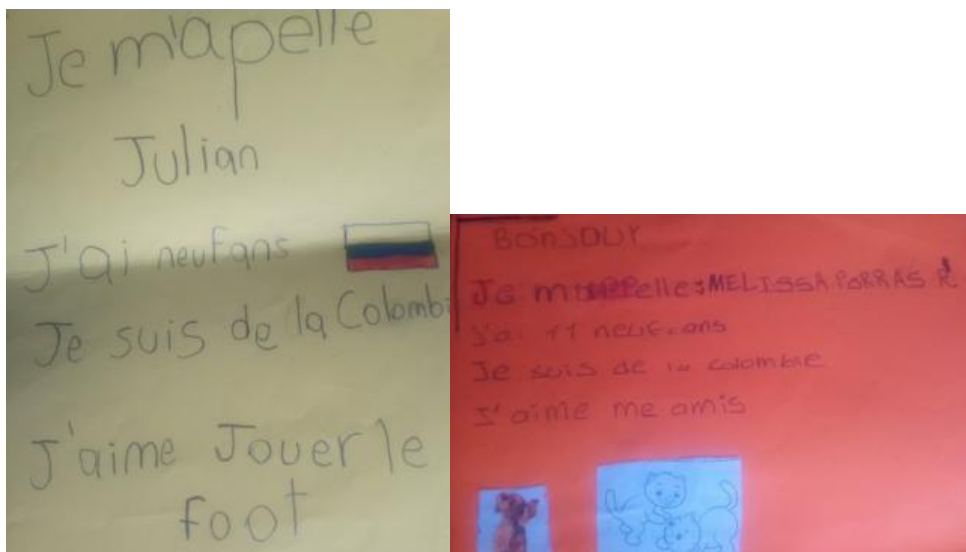 Je m'apelle
Julian
J'ai neuf ans
Je suis de la Colombi
J'aime Jouer le
foot
BONJOUr
Je mappelle: MELISSA PORRAS R
J'ai 11 neuf-ans
Je suis de la colombie
J'aime me amis